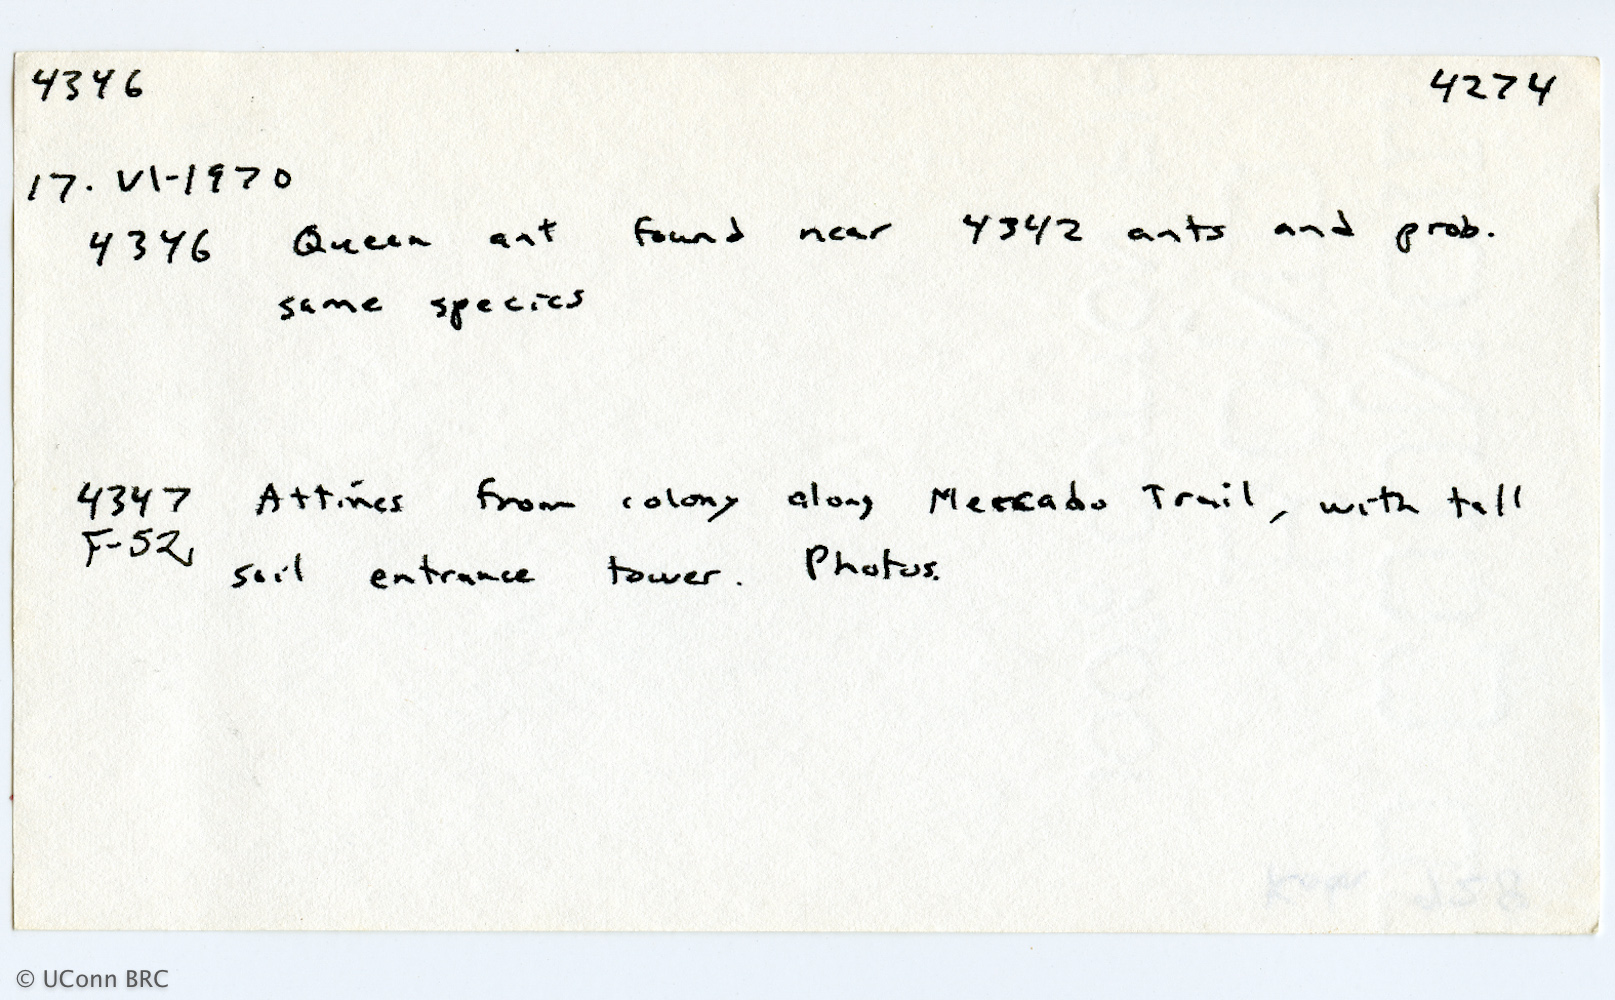 4346 4274
17. VI-1970
4346 Queen ant found near 4342 ants and prob.
same species
4347 Attines from colony along Mercado Trail, with tall
F-52,
soil entrance tower. Photos.
© UConn BRC